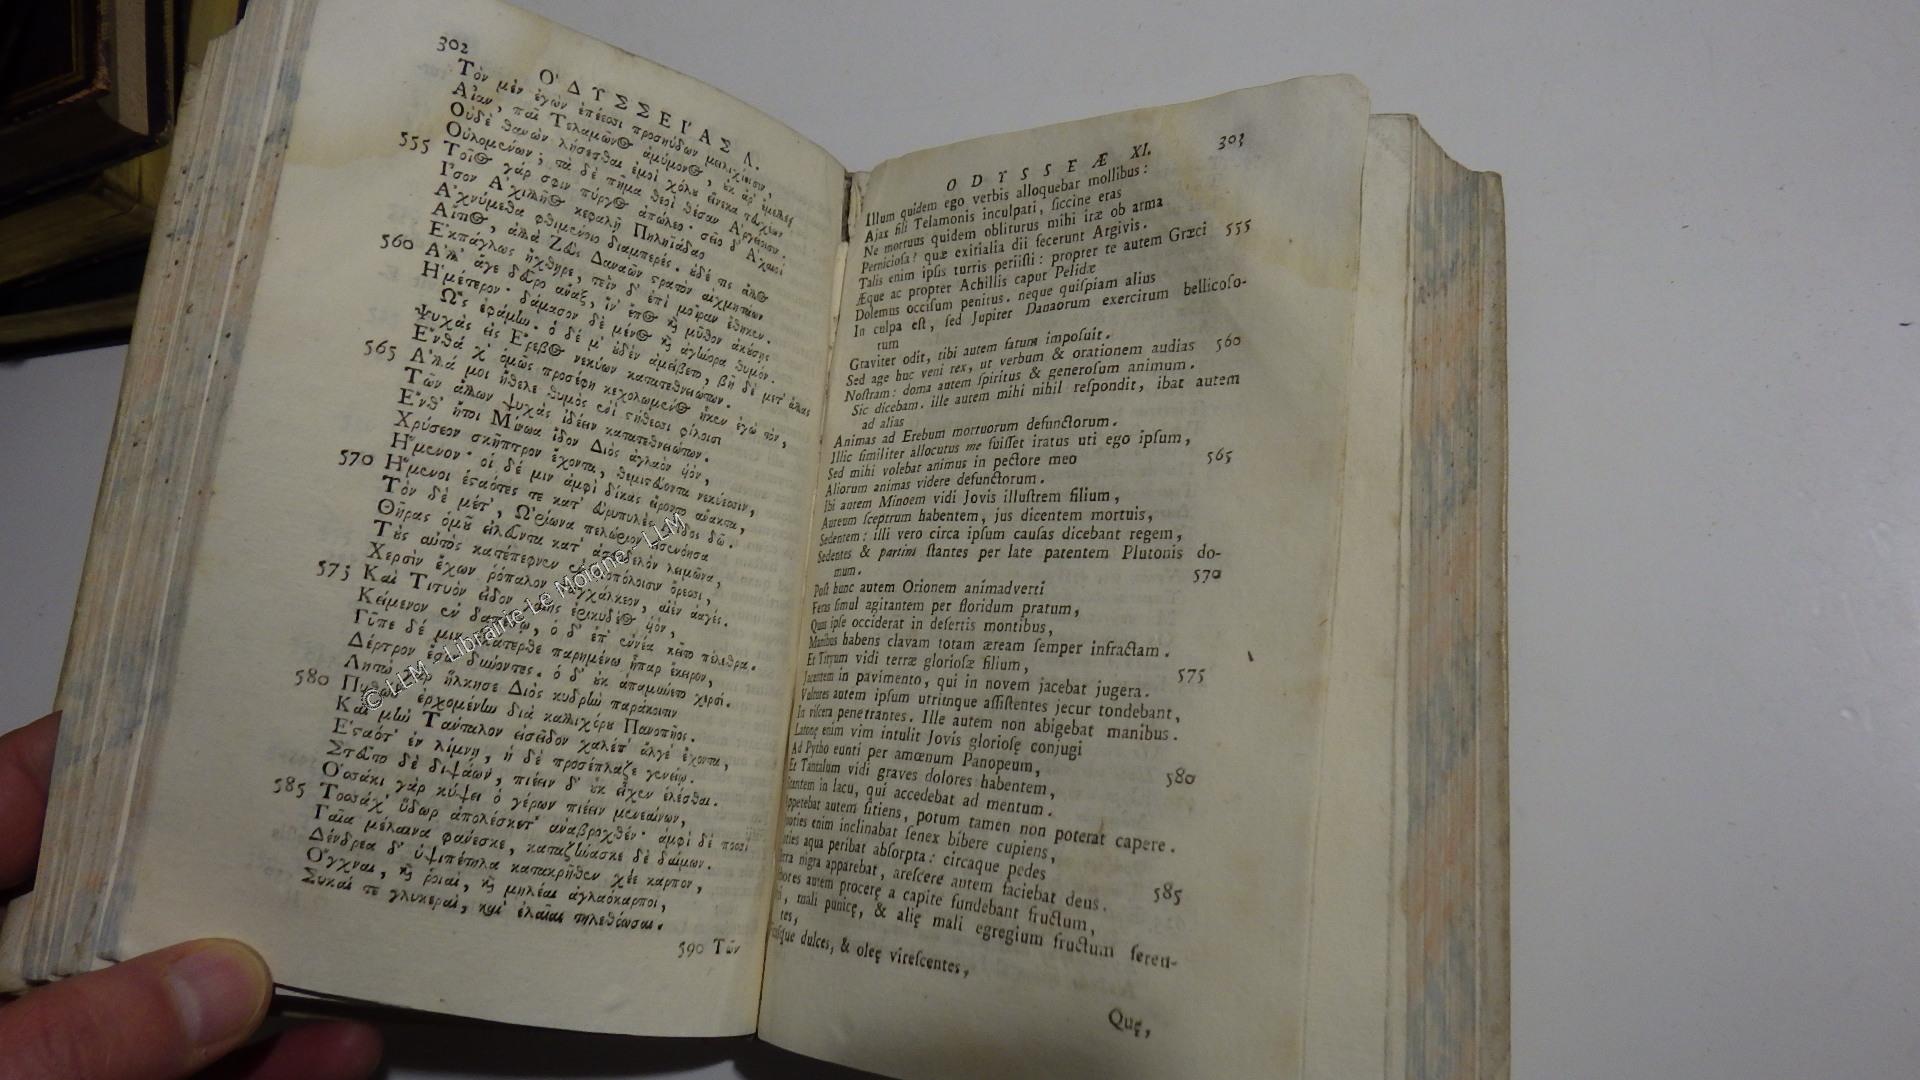 302
Ο᾽ΔΥΣΣΕΙ᾽ΑΣ Λ.
Τὸν μὲν ἐγὼν ἐπέεσσι προσηύδων μειλιχίοισιν,
Αἶαν, παῖ Τελαμῶνος ἀμύμονος, ἐκ ἄρ᾽ ἔμελλες
Οὐδὲ θανὼν λήσεσθαι ἐμοὶ χόλου εἵνεκα τευχέων
555 Οὐλομένων; τὰ δὲ πῆμα θεοὶ θέσαν Ἀργείοισιν.
Τοῖος γάρ σφιν πύργος ἀπώλεο· σεῖο δ᾽ Ἀχαιοὶ
Ἶσον Ἀχιλλῆος κεφαλῇ Πηληϊάδαο
Ἀχνύμεθα φθιμένοιο διαμπερές. οὐδέ τις ἄλλος
Αἴτιος, ἀλλὰ Ζεὺς Δαναῶν στρατὸν αἰχμητάων
560 Ἐκπάγλως ἤχθηρε, τεῒν δ᾽ ἐπὶ μοῖραν ἔθηκεν.
Ἀλλ᾽ ἄγε δεῦρο ἄναξ, ἵν᾽ ἔπος καὶ μῦθον ἀκούσῃς
Ἡμέτερον· δάμασον δὲ μένος καὶ ἀγήνορα θυμόν.
Ὣς ἐφάμην. ὁ δέ μ᾽ οὐδὲν ἀμείβετο, βῆ δὲ μετ᾽ ἄλλας
Ψυχὰς εἰς Ἔρεβος νεκύων κατατεθνειώτων.
565 Ἔνθά χ᾽ ὁμῶς προσέφη κεχολωμένος ἤ κεν ἐγὼ τόν,
Ἀλλά μοι ἤθελε θυμὸς ἐνὶ στήθεσσι φίλοισι
Τῶν ἄλλων ψυχὰς ἰδέειν κατατεθνειώτων.
Ἔνθ᾽ ἤτοι Μίνωα ἴδον Διὸς ἀγλαὸν υἱόν,
Χρύσεον σκῆπτρον ἔχοντα, θεμιστεύοντα νεκύεσσιν,
Ἥμενον· οἱ δέ μιν ἀμφὶ δίκας εἴροντο ἄνακτα,
570 Ἥμενοι ἑσταότες τε κατ᾽ εὐρυπυλὲς ἄϊδος δῶ.
Τὸν δὲ μέτ᾽, Ὠρίωνα πελώριον εἰσενόησα
Θῆρας ὁμοῦ εἰλεῦντα κατ᾽ ἀσφοδελὸν λειμῶνα,
Τοὺς αὐτὸς κατέπεφνεν ἐν οἰοπόλοισιν ὄρεσσι,
Χερσὶν ἔχων ῥόπαλον παγχάλκεον, αἰὲν ἀαγές.
575 Καὶ Τιτυὸν εἶδον γαίης ἐρικυδέος υἱόν,
Κείμενον ἐν δαπέδῳ, ὁ δ᾽ ἐπ᾽ ἐννέα κεῖτο πέλεθρα.
Γῦπε δέ μιν ἑκάτερθε παρημένω ἧπαρ ἔκειρον,
Δέρτρον ἔσω δύνοντες. ὁ δ᾽ οὐκ ἀπαμύνετο χερσί.
Λητὼ γὰρ ἥλκησε Διὸς κυδρὴν παράκοιτιν
580 Πυθώδ᾽ ἐρχομένην διὰ καλλιχόρου Πανοπῆος.
Καὶ μὴν Τάνταλον εἰσεῖδον χαλέπ᾽ ἄλγε᾽ ἔχοντα,
Ἑσταότ᾽ ἐν λίμνῃ, ἡ δὲ προσέπλαζε γενείῳ.
Στεῦτο δὲ διψάων, πιέειν δ᾽ οὐκ εἶχεν ἑλέσθαι.
Ὁσσάκι γὰρ κύψει ὁ γέρων πιέειν μενεαίνων,
585 Τοσσάχ᾽ ὕδωρ ἀπολέσκετ᾽ ἀναβροχθέν· ἀμφὶ δὲ ποσσὶ
Γαῖα μέλαινα φάνεσκε, καταζήνασκε δὲ δαίμων.
Δένδρεα δ᾽ ὑψιπέτηλα κατακρῆθεν χέε καρπόν,
Ὄγχναι, καὶ ῥοιαί, καὶ μηλέαι ἀγλαόκαρποι,
Συκαῖ τε γλυκεραί, καὶ ἐλαῖαι τηλεθόωσαι.
590 Τῶν
© LLM - Librairie Le Moigne - LLM
ODYSSEÆ XI. 303
Illum quidem ego verbis alloquebar mollibus:
Ajax fili Telamonis inculpati, ſiccine eras
Ne mortuus quidem obliturus mihi iræ ob arma
Pernicioſa? quæ exitialia dii fecerunt Argivis. 555
Talis enim ipſis turris periiſti: propter te autem Græci
Æque ac propter Achillis caput Pelidæ
Dolemus occiſum penitus. neque quiſpiam alius
In culpa eſt, ſed Jupiter Danaorum exercitum bellicoſo-
rum
Graviter odit, tibi autem fatum impoſuit. 560
Sed age huc veni rex, ut verbum & orationem audias
Noſtram: doma autem ſpiritus & generoſum animum.
Sic dicebam. ille autem mihi nihil reſpondit, ibat autem
ad alias
Animas ad Erebum mortuorum defunctorum.
Illic ſimiliter allocutus me fuiſſet iratus uti ego ipſum, 565
Sed mihi volebat animus in pectore meo
Aliorum animas videre defunctorum.
Ibi autem Minoem vidi Jovis illuſtrem filium,
Aureum ſceptrum habentem, jus dicentem mortuis,
Sedentem: illi vero circa ipſum cauſas dicebant regem,
Sedentes & partim ſtantes per late patentem Plutonis do-
mum. 570
Poſt hunc autem Orionem animadverti
Feras ſimul agitantem per floridum pratum,
Quas ipſe occiderat in deſertis montibus,
Manibus habens clavam totam æream ſemper infractam.
Et Tityum vidi terræ glorioſæ filium, 575
Jacentem in pavimento, qui in novem jacebat jugera.
Vultures autem ipſum utrinque aſſiſtentes jecur tondebant,
In viſcera penetrantes. Ille autem non abigebat manibus.
Latonę enim vim intulit Jovis glorioſę conjugi
Ad Pytho eunti per amœnum Panopeum, 580
Et Tantalum vidi graves dolores habentem,
Stantem in lacu, qui accedebat ad mentum.
Appetebat autem ſitiens, potum tamen non poterat capere.
quoties enim inclinabat ſenex bibere cupiens,
toties aqua peribat abſorpta: circaque pedes 585
terra nigra apparebat, areſcere autem faciebat deus.
arbores autem procerę a capite fundebant fructum,
mali punicę, & alię mali egregium fructum feren-
tes,
Ficuſque dulces, & oleę vireſcentes,
Quę,